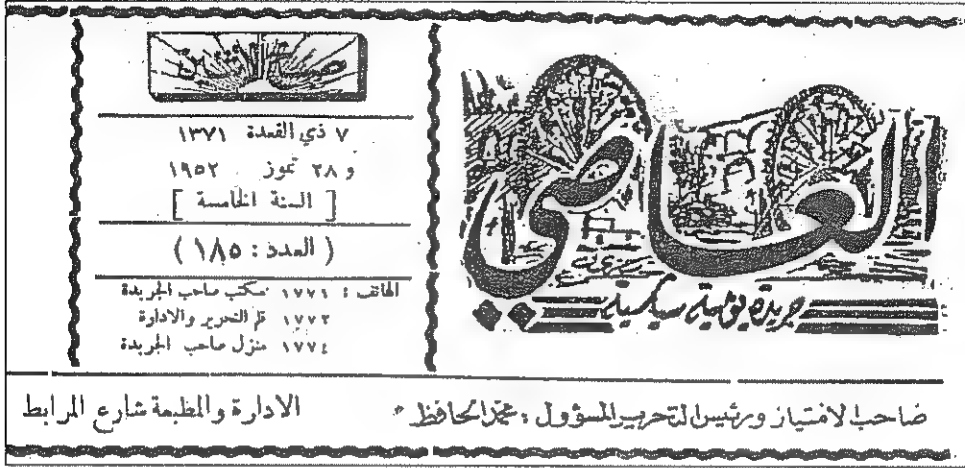 العاصي
جريدة يومية سياسية
صباح الاثنين
٧ ذي القعدة ١٣٧١
و ٢٨ تموز ١٩٥٢
[ السنة الخامسة ]
( العدد : ١٨٥ )
الهاتف : ١٧٧١ مكتب صاحب الجريدة
١٧٧٢ قلم التحرير والادارة
١٧٧٤ منزل صاحب الجريدة
صاحب الامتياز ورئيس التحرير المسؤول : محمد الحافظ * الادارة والمطبعة شارع المرابط